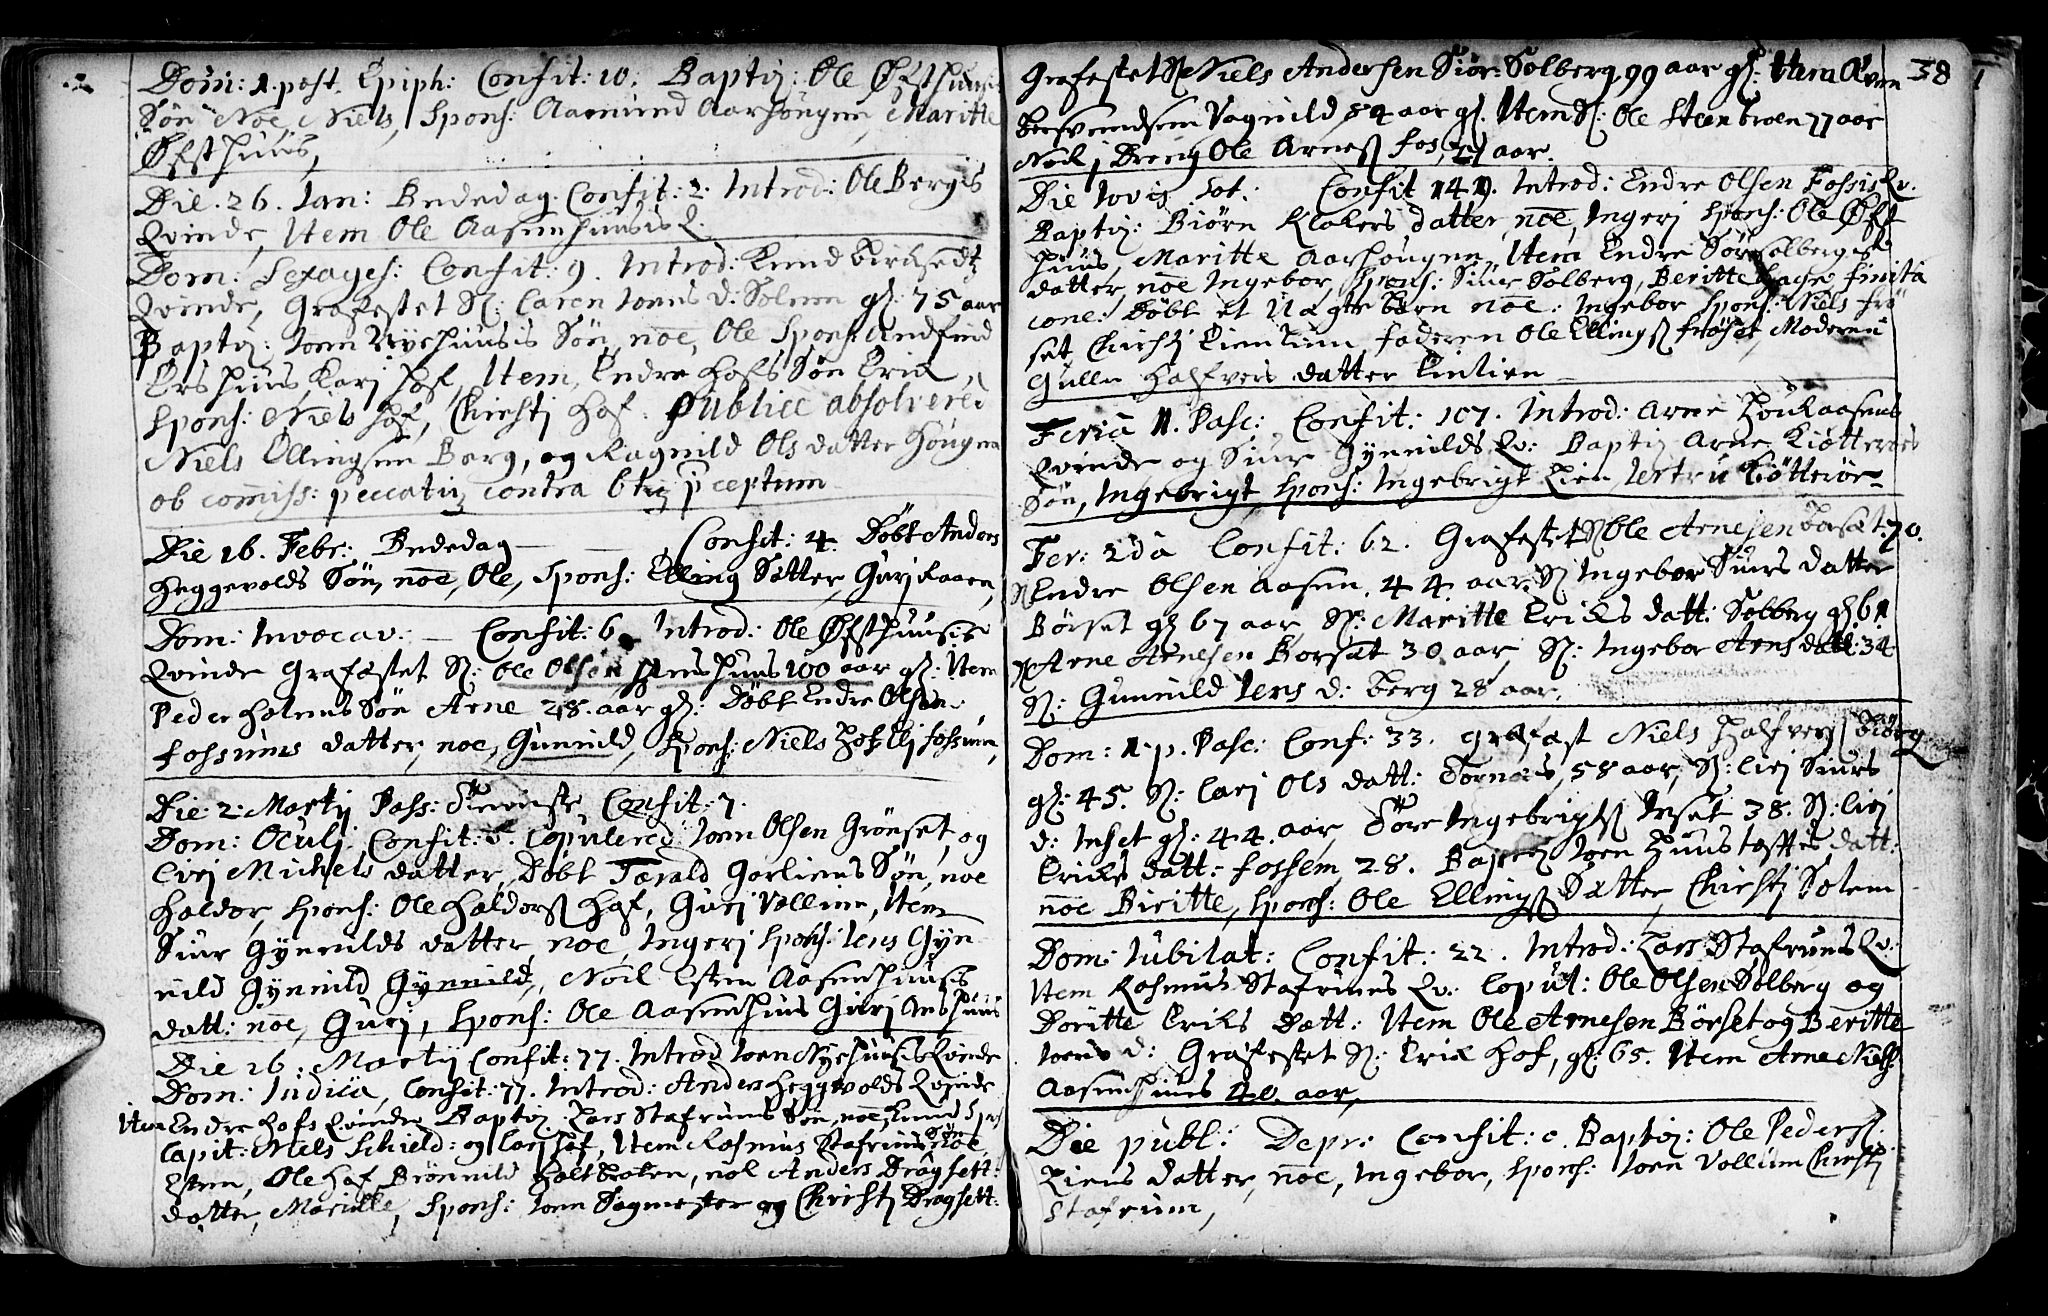 Dom: 1. post. Epiph: Confit: 10. Baptiz: Ole Øfsthuusis
Søn Noe, Niels, Spons: Aamund Aarhougen, Maritte
Øfsthuus,
Die. 26. Jan: Bededag. Confit: 2. Introd: Ole Bergis
Qvinde, Item Ole Aasenhuusis Q.
Dom: Sexages: Confit: 9. Introd: Knud
Qvinde, Grafestet Sl: Caren Joens d: Solem gl: 75 aar
Baptiz: Joen Nyehuusis Søn, noe, Ole Spons: Andfind
Huus Karj Hof, Item, Endre Hofs Søn Erick,
Spons: Niels Hof, Chirstj Hof. Publicè absolvered
Niels Ellingsen Berg, og Ragnild Ols datter Hougen
ob commiss: peccatu contra 6tu pceptum
Die 16. Febr: Bededag — Confit: 4. Døbt Anders
Heggevolds Søn, noe, Ole, Spons: Elling Sætter, Gurj Raaen,
Dom: Invocav: — Confit: 6. Introd: Ole Øfsthuusis
Qvinde Grafestet Sl: Ole Olsen huus 100 aar gl: Item
Peder Holems Søn Arne 28. aar gl: Døbt Endre Olsen
Fossums datter, noe, Gunnild, Spons: Niels Hof Fossum,
Die. 2. Martij Pass: Confit: 7.
Dom: Oculj. Confit: 5. Copulered Joen Olsen Grønset, og
Cirj Michels datter, Døbt Tarald Garliens Søn, noe
Haldor, Spons: Ole Haldorss Hof, Gurj Vollum, Item
Siur Gynnilds datter, noe, Ingerj Spons: Jens Gyn
nild Gynnild Gynnild, Noch Esten Aasenhuus
datt: noe, Gurj, Spons: Ole Aasenhuus Gurj huus
Die 16. Martij Confit: 77. Introd Joen Nyehuusis Qvinde
Dom: Judica, Confit: 77. Introd: Anders Heggevolds Qvinde
Item Endre Hofs Qvinde Baptiz. Lars Stafrums Søn, noe, Knud Spons
Capit: Niels Schield: og Hof, Item Rasmus Stafrums Søn noe,
Esten, Ole Hof Brønnild Holtbaken, nok Anders Dragsett:
datter, Maritte, Spons: Joen Sagmester og Chirstj Dragsett:
38
Grafestet Sl Niels Andersen Siør: Solberg 99 aar gl:
Vagnild 54 aar gl. Item Sl: Ole Steenbroen 77 aar
Nock j Dreng Ole Arness Fos, 21 aar.
Die Jovis Sct: Confit 141. Introd: Endre Olsen Fossis Qv.
Baptiz: Biørn Klokers datter, noe, Ingerj Spons: Ole Øfst
huus, Maritte Aarhougen, Item Endre Sør solbergis
datter, noe Ingebor, Spons: Siur Solberg, Beritte Finita
cone: Døbt et Uægte Barn noe: Ingebor Spons: Niels Frø
set, Chirstj Faderen Ole Ellingss Frøset, Moderen
Gullu Halfvers datter
Feria 1. Pasc: Confit: 107. Introd: Arne Houkaasens
Qvinde og Siur Gynnilds Qv: Baptiz Arne
Søn, Ingebrigt, Spons: Ingebrigt Lien
Fer: 2da Confit: 62. Grafestet Sl Ole Arnesen 70.
Sl Endre Olsen Aasen. 44. aar. Sl Ingebor Siurs datter
Børset gl 67 aar, Sl: Maritte Ericks datt: Solberg gl 61
Sl Arne Arnesen Borset 30 aar, Sl: Ingebor Arns datt: 34
Sl: Gunnild Jens d: Berg 28 aar.
Dom: 1. p. Pasc: Conf: 33. grafæst Niels Halfverss Biørg
gl: 45. Sl: Carj Ols datt: Tornæs, 58 aar, Sl: Cirj Siurs
d: Inset gl: 44. aar, Tore Ingebrigtss Inset 38. Sl: Cirj
Ericks datt: Fossem, 28. Baptiz Joen Huustøfftes datt:
noe Biritte, Spons: Ole Ellingss Sætter, Chirstj Solem
Dom: Jubilat: Confit: 22. Introd: Lars Stafrums Qv:
Item Rasmus Stafrums Qv: Copul: Ole Olsen Solberg og
Doritte Ericks Datt: Item Ole Arnesen Børset og Beritte
Joens d: Grafestet Sl: Erick Hof, gl: 65. Item Arne Nielss:
Aasenhuus 40. aar,
Die publ: Depr: Confit: 0. Baptiz: Ole Pederss:
Liens datter, noe, Ingebor, Spons: Joen Vollum Chirstj
Stafrum,